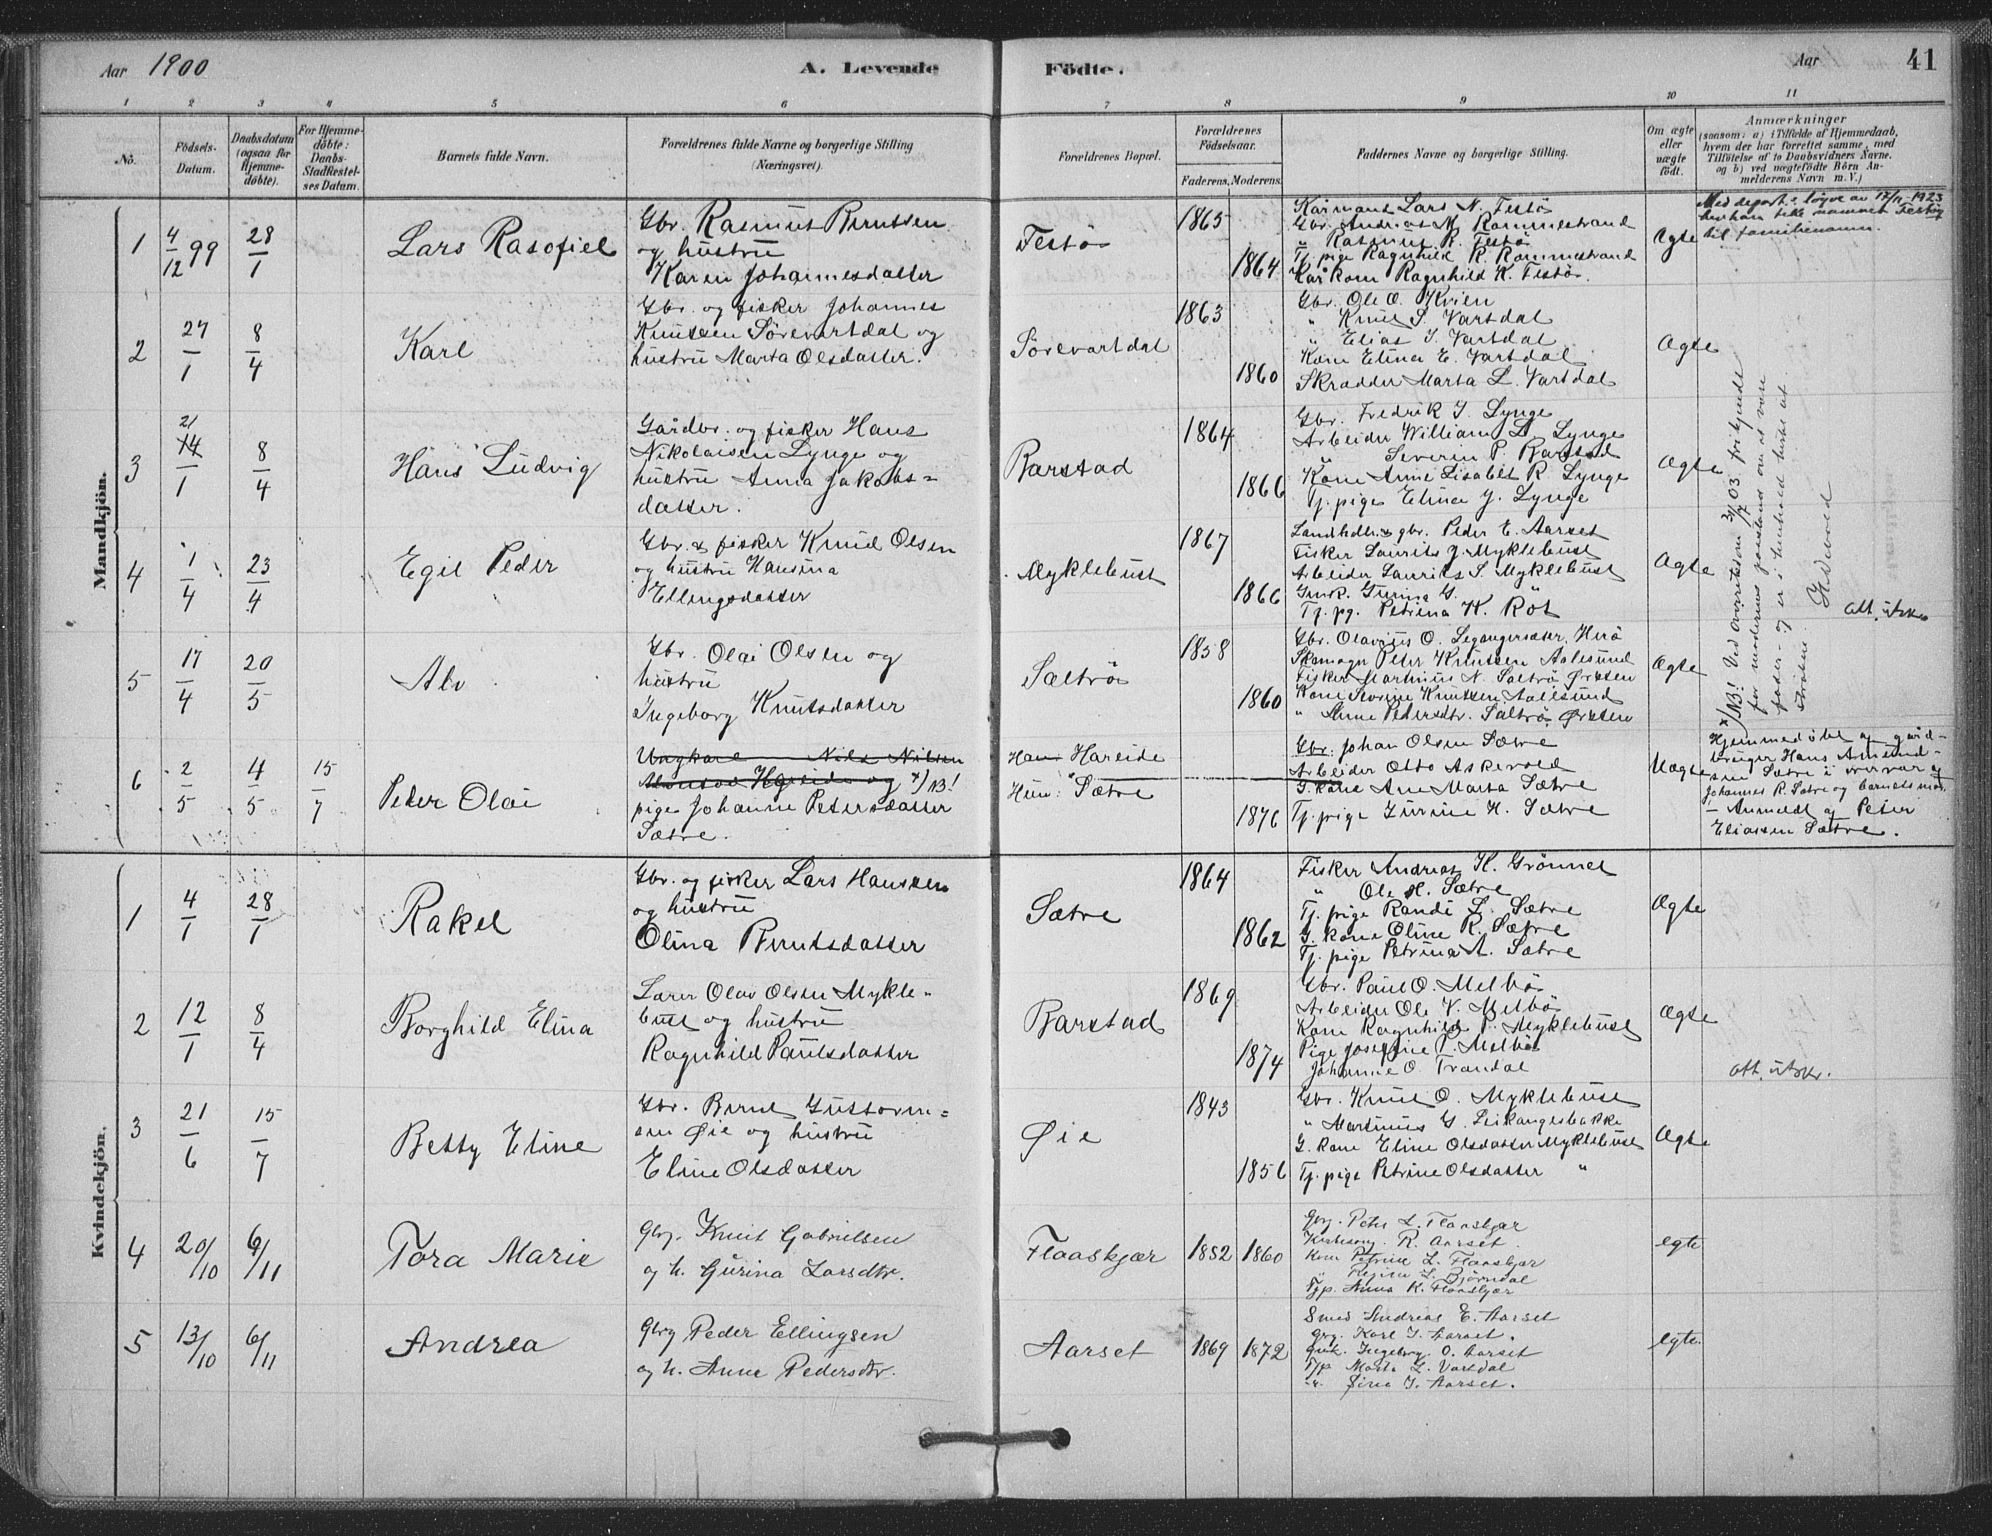 Aar 1900
A. Levende
Födte.
Aar
41
1 2 3 4 5 6 7 8 9 10 11
No.
Födsels-
Datum.
Daabsdatum
(ogsaa for
Hjemme-
döbte).
For Hjemme-
döbte:
Daabs-
Stadfæstel-
ses Datum.
Barnets fulde Navn.
Forældrenes fulde Navne og borgerlige Stilling
(Næringsvei).
Forældrenes Bopæl.
Forældrenes
Födselsaar.
Faderens, Moderens.
Faddernes Navne og borgerlige Stilling.
Om ægte
eller
uægte
födt.
Anmærkninger
(saasom: a) i Tilfælde af Hjemmedaab,
hvem der har forrettet samme, med
Tilföielse af to Daabsvidners Navne.
og b) ved uægtefödte Börn An-
melderens Navn m. V.)
Mandkjön.
1
4/12 99
28/1
Lars Rasofiel
Gbr. Rasmus Berntsen
og hustru
Karen Johannesdatter
Festö
1865
1864
Kårmand Lars N. Festö
Gbr. Andreas M. Rammestrand
" Rasmus K. Festö
Tj. pige Ragnhild R. Rammestrand
Kår kone Ragnhild K. Festö.
Ægte
Med depart.s løyve av 17/11 1923
hev han teke namnet Festøy
til familienamn.
2
27/1
8/4
Karl
Gbr. og fisker Johannes
Knutsen Sörevartdal og
hustru Marta Olsdatter.
Sörevartdal
1863
1860
Gbr. Ole O. Kvien
" Knut S. Vartdal
" Elias I. Vartdal
Kone Elina E. Vartdal
Skrædder Marta L. Vartdal
Ægte
3
21
14/1
8/4
Hans Ludvig
Gårdbr. og fisker Hans
Nikolaisen Lynge og
hustru Anna Jakobs=
datter.
Barstad
1864
1866
Gbr. Fredrik J. Lynge
Arbeider William L. Lynge
Severin P. Barstad
Kone Anne Lisabet R. Lynge
Tj. pige Elina J. Lynge
Ægte
4
1/4
23/4
Egil Peder
Gbr. & fisker Knud Olsen
og hustru Hansina
Ellingsdatter
Myklebust
1867
1866
Landhdl. & gbr. Peder E. Aarset
Fisker Laurits J. Myklebust
Arbeider Laurits S. Myklebust
Gmk. Gurina G. "
Tj. pg. Petrina K. Röt
Ægte
Att. utskr.
5
17/4
20/5
Alv
Gbr. Olai Olsen og
hustru
Ingeborg Knutsdatter
Sæltrö
1858
1860
Gbr. Olavius O. Leganger­sæter, Herö
Skomagr Peter Knutsen Aalesund
Fisker Martinus N. Sæltrö Ørsten
Kone Severine Knutsen Aalesund
" Anne Pedersdtr. Sæltrö Ørsten
Ægte
x) NB! Ved overretsdom 3/7 03 frikjendt
for moderens paastand om at være
fader - og er i henhold hertil at
Hidevold
6
2/5
4/5
15/7
Peder Olai
Ungkarl Nils Nilsen
Hareide og x) NB!
pige Johanne Petersdatter
Sætre.
Han Hareide
Hun: Sætre
1876
Gbr. Johan Olsen Sætre
Arbeider Otto Askevold
G. kone Ane Marta Sætre
Tj. pige Gurine H. Sætre
Uægte
Hjemmedöbt af gård-
bruger Hans Amund-
sen Sætre i nærvær af
Johannes R. Sætre og barnets mor.
- Anmeldt af Peter
Eliassen Sætre.
Kvindekjön.
1
4/1
28/1
Rakel
Gbr. og fisker Lars Hanssen
og hustru
Olina Berntsdatter
Sætre
1864
1862
Fisker Andreas K. Grönnet
" Ole H. Sætre
Tj. pige Randi L. Sætre
G. kone Oline R. Sætre
Tj. pige Petrina A. Sætre
Ægte
2
12/1
8/4
Borghild Elina
Lærer Olav Olsen Mykle-
bust og hustru
Ragnhild Paulsdatter
Barstad
1869
1874
Gbr. Paul O. Melbö
Arbeider Ole V. Melbö
Kone Ragnhild P. Myklebust
Pige Josefine P. Melbö
Johanne O Trandal
Ægte
att. utskr.
3
21/6
15/7
Betty Eline
Gbr. Bernt Gustavin=
sen Øie og hustru
Eline Olsdatter
Øie
1843
1856
Gbr. Knut O. Myklebust
" Martinus G. Leikangesbakke
G. kone Eline Olsdatter Myklebust
Tj. pige Petrine Olsdatter "
Ægte
4
20/10
6/11
Tora Marie
Gbrg. Knut Gabrielsen
og h. Gurina Larsdtr.
Flaaskjær
1852
1860
Gbrg. Peter L. Flaaskjær
Kirkesang. R. Aarset.
Kone Petrine L. Flaaskjær
" L. Bjørndal
Tjp. Anna K. Flaaskjær
egte
5
13/10
6/11
Andrea
Gbrg Peder Ellingsen
og h. Anne Pedersdtr.
Aarset
1869
1872
Smed Andreas E. Aarset
Gbrg. Karl I. Aarset.
Gmk. Ingeborg O. Aarset
Tjp Marta L. Vartdal
" Sina I. Aarset.
egte.